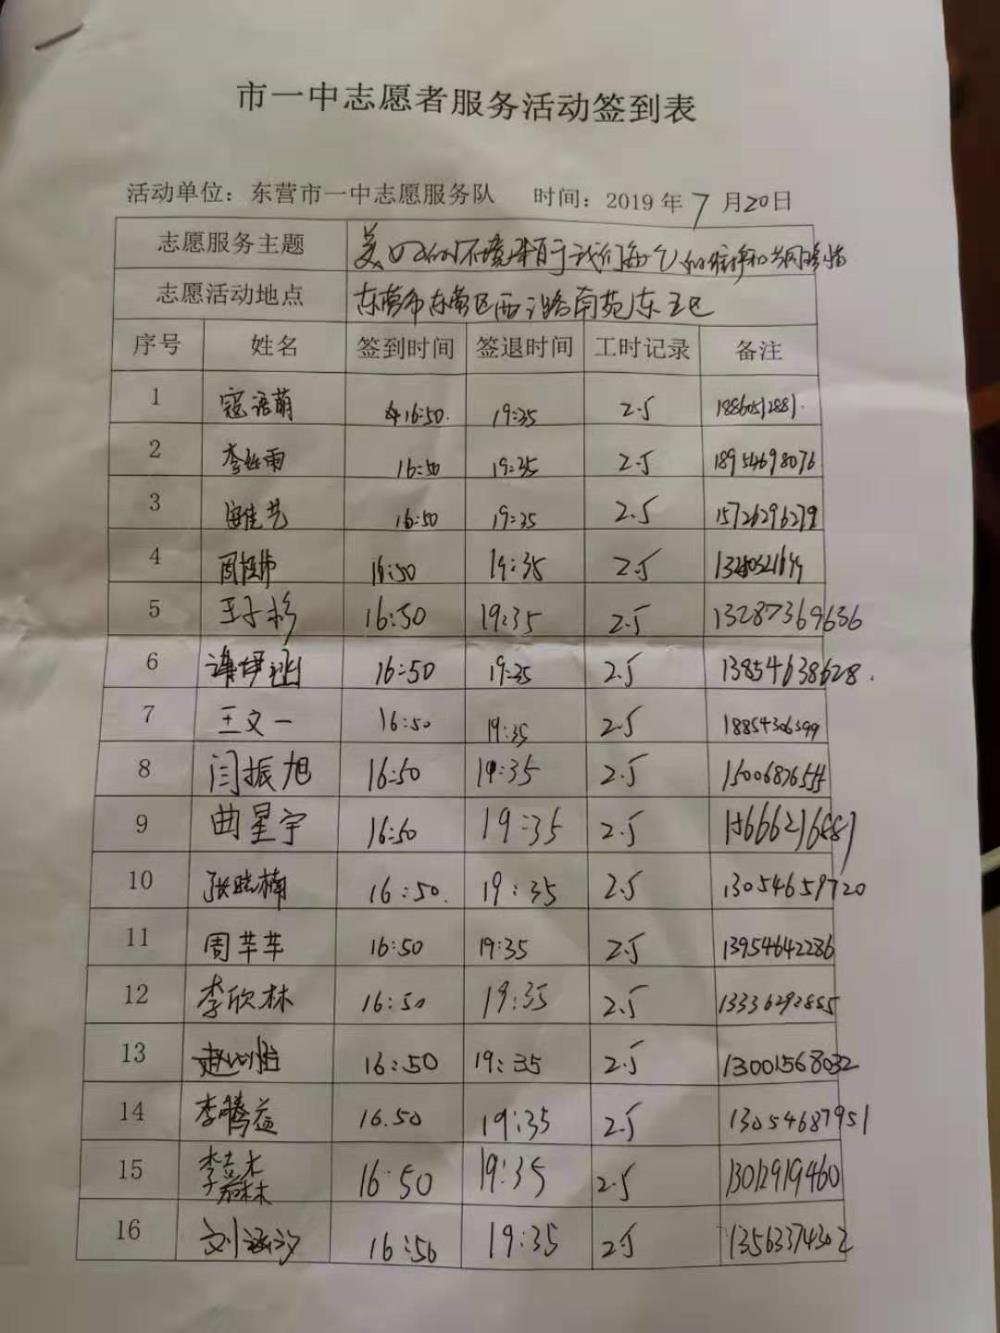 市一中志愿者服务活动签到表
活动单位：东营市一中志愿服务队 时间：2019年7月20日
志愿服务主题 美好的环境来自于我们每个人的维护和共同珍惜
志愿活动地点 东营市东营区西 路南苑东
序号 姓名 签到时间 签退时间 工时记录 备注
1 寇语萌 16:50. 19:35 2.5 18860512881.
2 李 雨 16:50 19:35 2.5 18954698076
3 佳艺 16:50 19:35 2.5 15726296279
4 周 16:50 19:35 2.5
5 王子杉 16:50 19:35 2.5 13287369636
6 16:50 19:35 2.5 13854638628.
7 王文一 16:50 19:35 2.5 18854306399
8 闫振旭 16:50 19:35 2.5
9 曲星宇 16:50 19:35 2.5
10 张晓楠 16:50. 19:35 2.5 13054659720
11 周芊芊 16:50 19:35 2.5 13954642286
12 李欣林 16:50 19:35 2.5 13336292855
13 赵 16:50 19:35 2.5 13001568032
14 李腾益 16.50 19:35 2.5 13054687951
15 李嘉林 16:50 19:35 2.5 13012919460
16 刘涵汐 16:50 19:35 2.5 13563374302